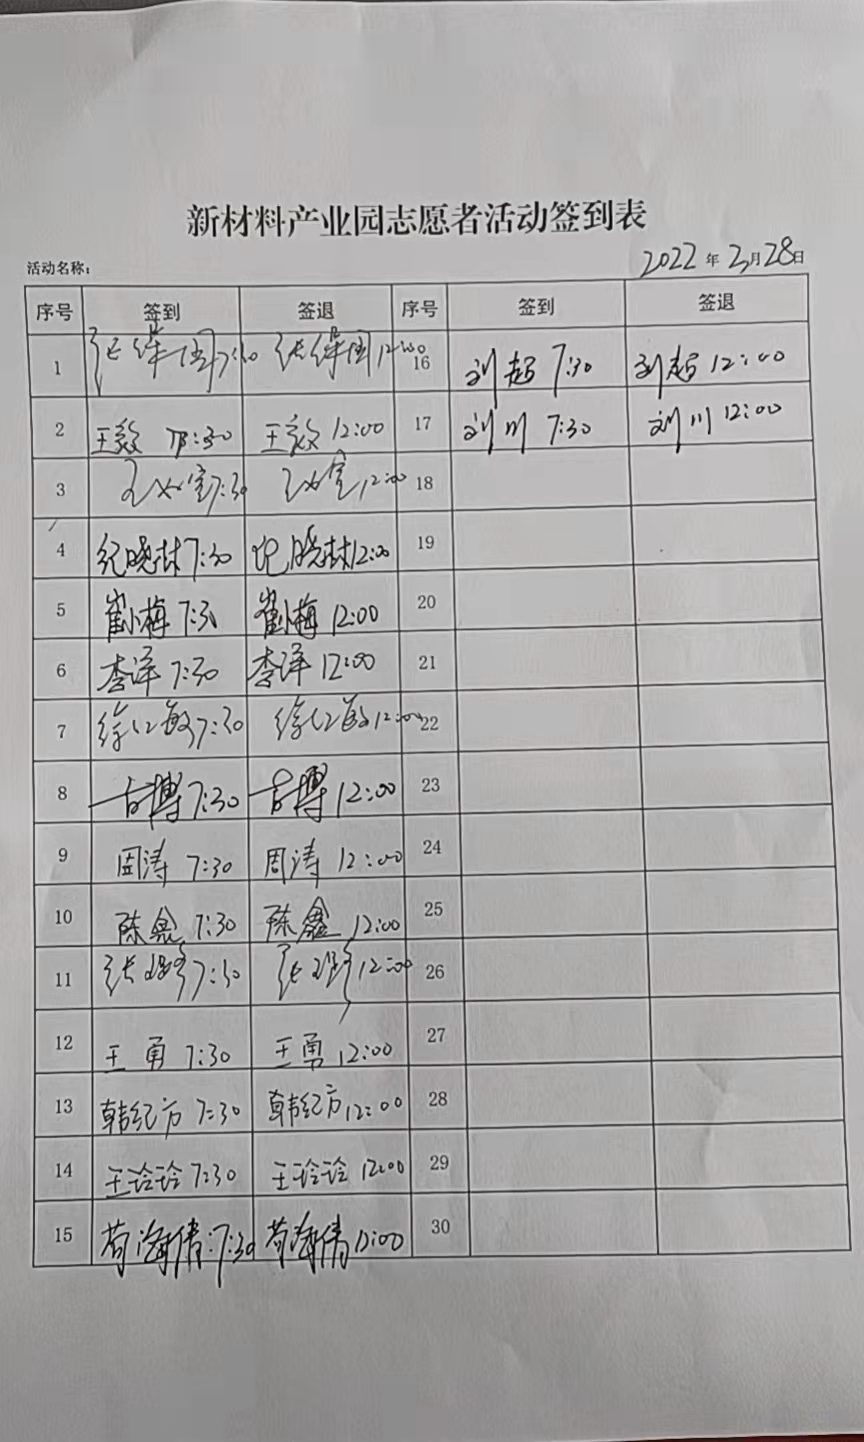 新材料产业园志愿者活动签到表
活动名称: 2022年2月28日
序号 签到 签退 序号 签到 签退
1 7:30 12:00 16 刘超 7:30 刘超 12:00
2 7:30 12:00 17 刘川 7:30 刘川 12:00
3 7:30 12:00 18
4 纪晓林 7:30 纪晓林 12:00 19
5 崔小梅 7:30 崔小梅 12:00 20
6 李洋 7:30 李洋 12:00 21
7 徐红敏 7:30 徐红敏 12:00 22
8 吉博 7:30 吉博 12:00 23
9 周涛 7:30 周涛 12:00 24
10 陈鑫 7:30 陈鑫 12:00 25
11 7:30 12:00 26
12 王勇 7:30 王勇 12:00 27
13 韩纪方 7:30 韩纪方 12:00 28
14 王玲玲 7:30 王玲玲 12:00 29
15 苟海倩 7:30 苟海倩 12:00 30